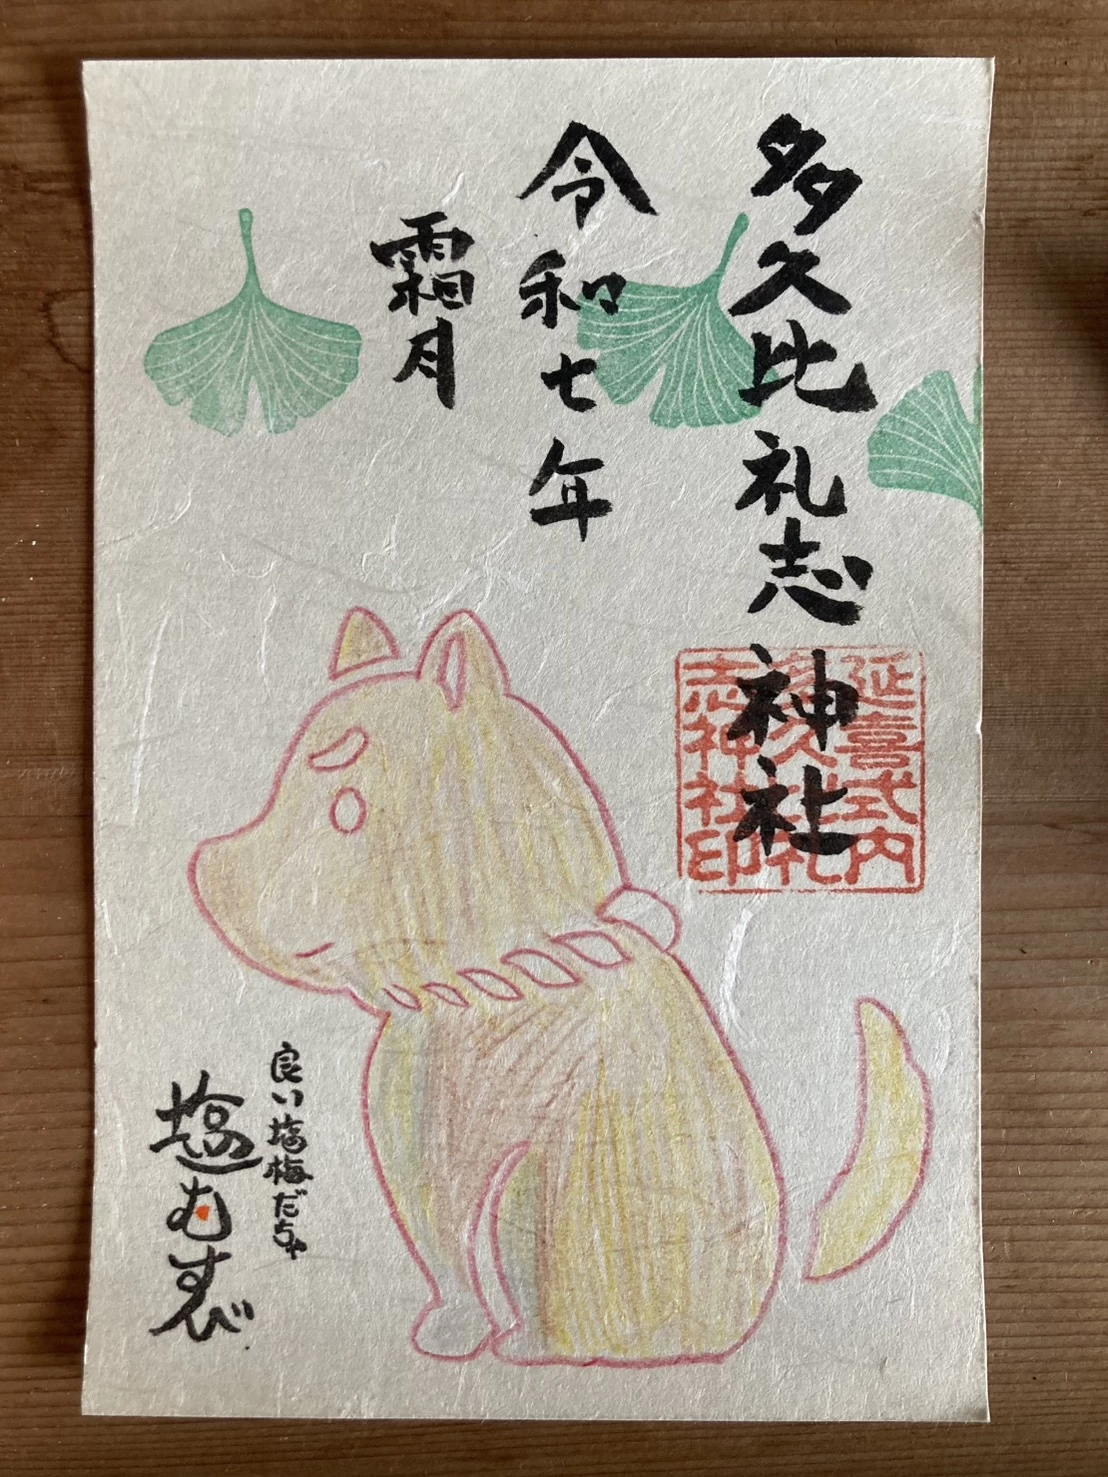 多久比礼志神社
延喜式内
多久比礼
志神社印
令和七年
霜月
良い塩梅だちゃ
塩むすび